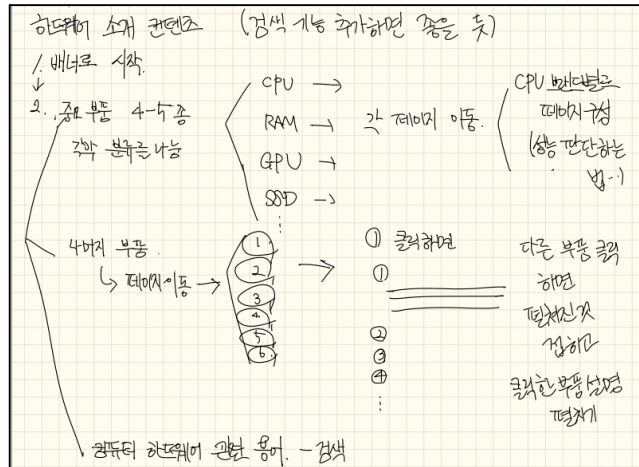 하드웨어 소개 컨텐츠 (검색 기능 추가하면 좋을 듯)
1. 배너로 시작.
↓
2. 중요 부품 4-5종
각각 분류를 나눔
CPU →
RAM →
GPU →
SSD →
⋮
각 페이지 이동.
CPU 브랜드별로
페이지 구성
(성능 판단하는
법…)
나머지 부품.
↳ 페이지 이동 →
①
②
③
④
⑤
⑥
→
① 클릭하면
①
②
③
④
⋮
다른 부품 클릭
하면
펼쳐진것
접하고
클릭한 부품 설명
펼치기
컴퓨터 하드웨어 관련 용어. - 검색